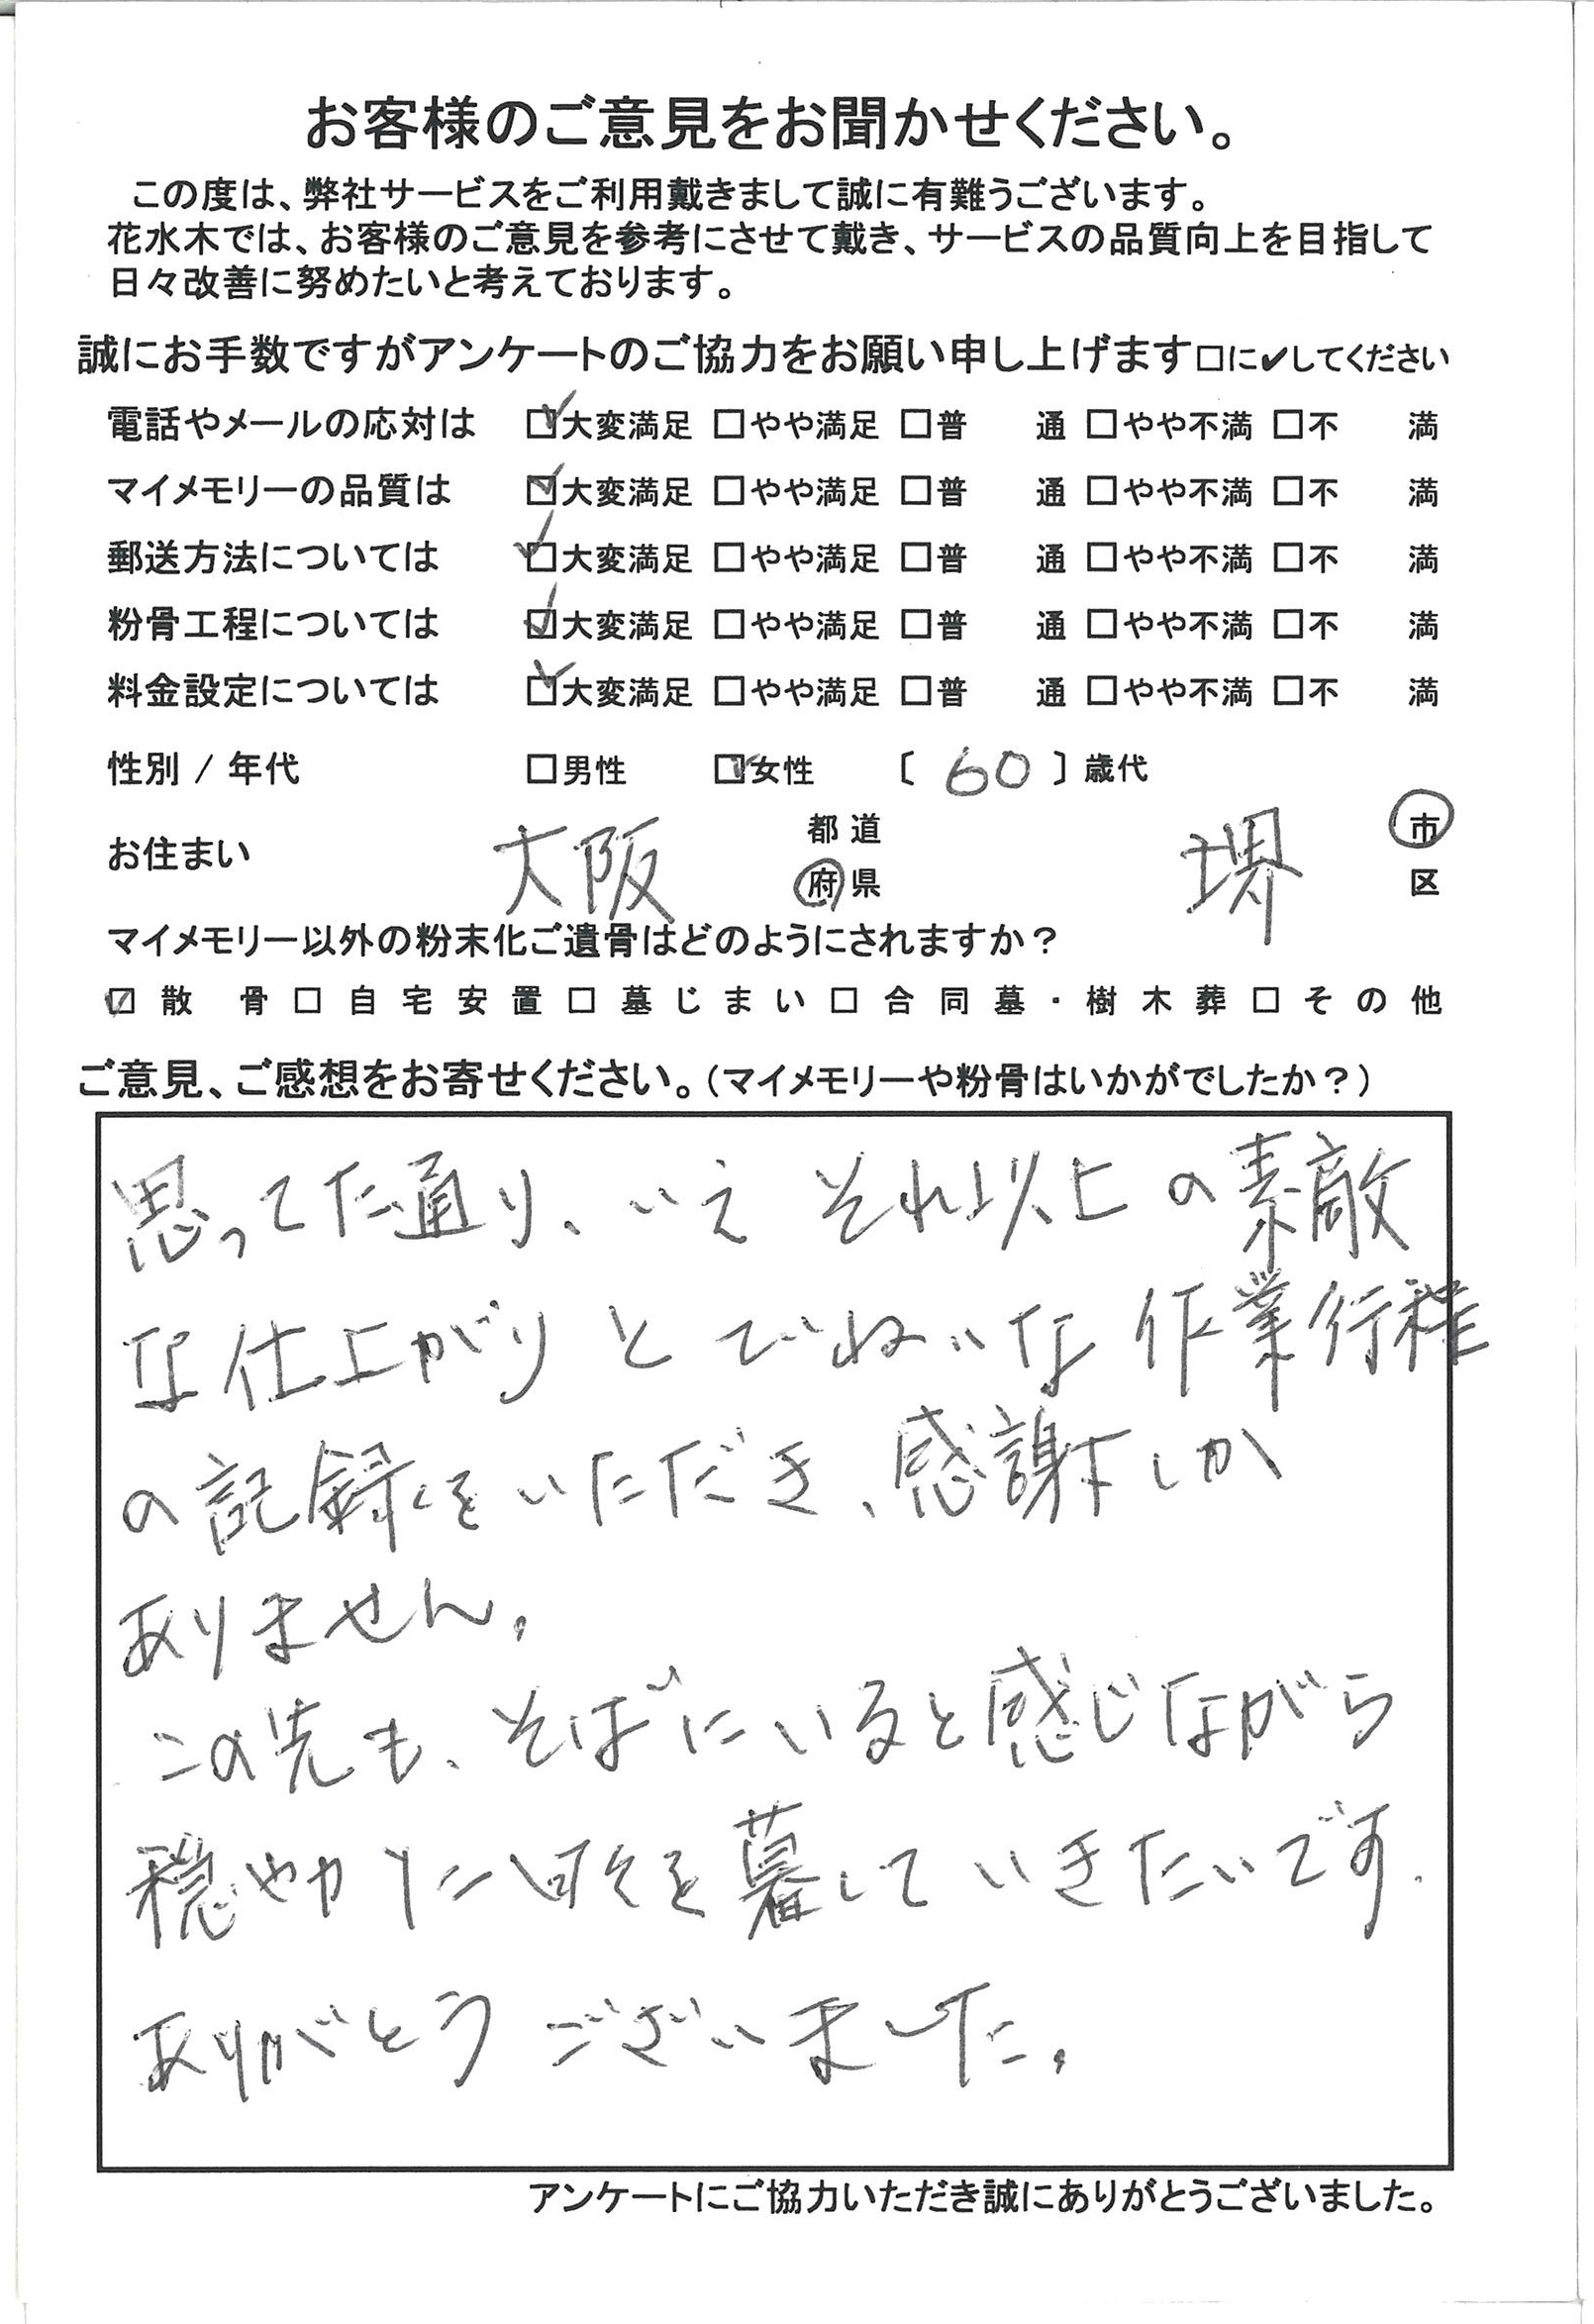 お客様のご意見をお聞かせください。
この度は、弊社サービスをご利用戴きまして誠に有難うございます。
花水木では、お客様のご意見を参考にさせて戴き、サービスの品質向上を目指して
日々改善に努めたいと考えております。
誠にお手数ですがアンケートのご協力をお願い申し上げます□に✔してください
電話やメールの応対は ☑大変満足 □やや満足 □普 通 □やや不満 □不 満
マイメモリーの品質は ☑大変満足 □やや満足 □普 通 □やや不満 □不 満
郵送方法については ☑大変満足 □やや満足 □普 通 □やや不満 □不 満
粉骨工程については ☑大変満足 □やや満足 □普 通 □やや不満 □不 満
料金設定については ☑大変満足 □やや満足 □普 通 □やや不満 □不 満
性別 / 年代 □男性 ☑女性 〔 60 〕歳代
お住まい 大阪 都道府県 堺 市区
マイメモリー以外の粉末化ご遺骨はどのようにされますか？
☑散 骨 □自宅安置 □墓じまい □合同墓・樹木葬 □その他
ご意見、ご感想をお寄せください。（マイメモリーや粉骨はいかがでしたか？）
思ってた通り、いえ それ以上の素敵
な仕上がりと ていねいな 作業行程
の記録をいただき、感謝しか
ありません。
この先も、そばにいると感じながら
穏やかに日々を暮していきたいです.
ありがとうございました。
アンケートにご協力いただき誠にありがとうございました。